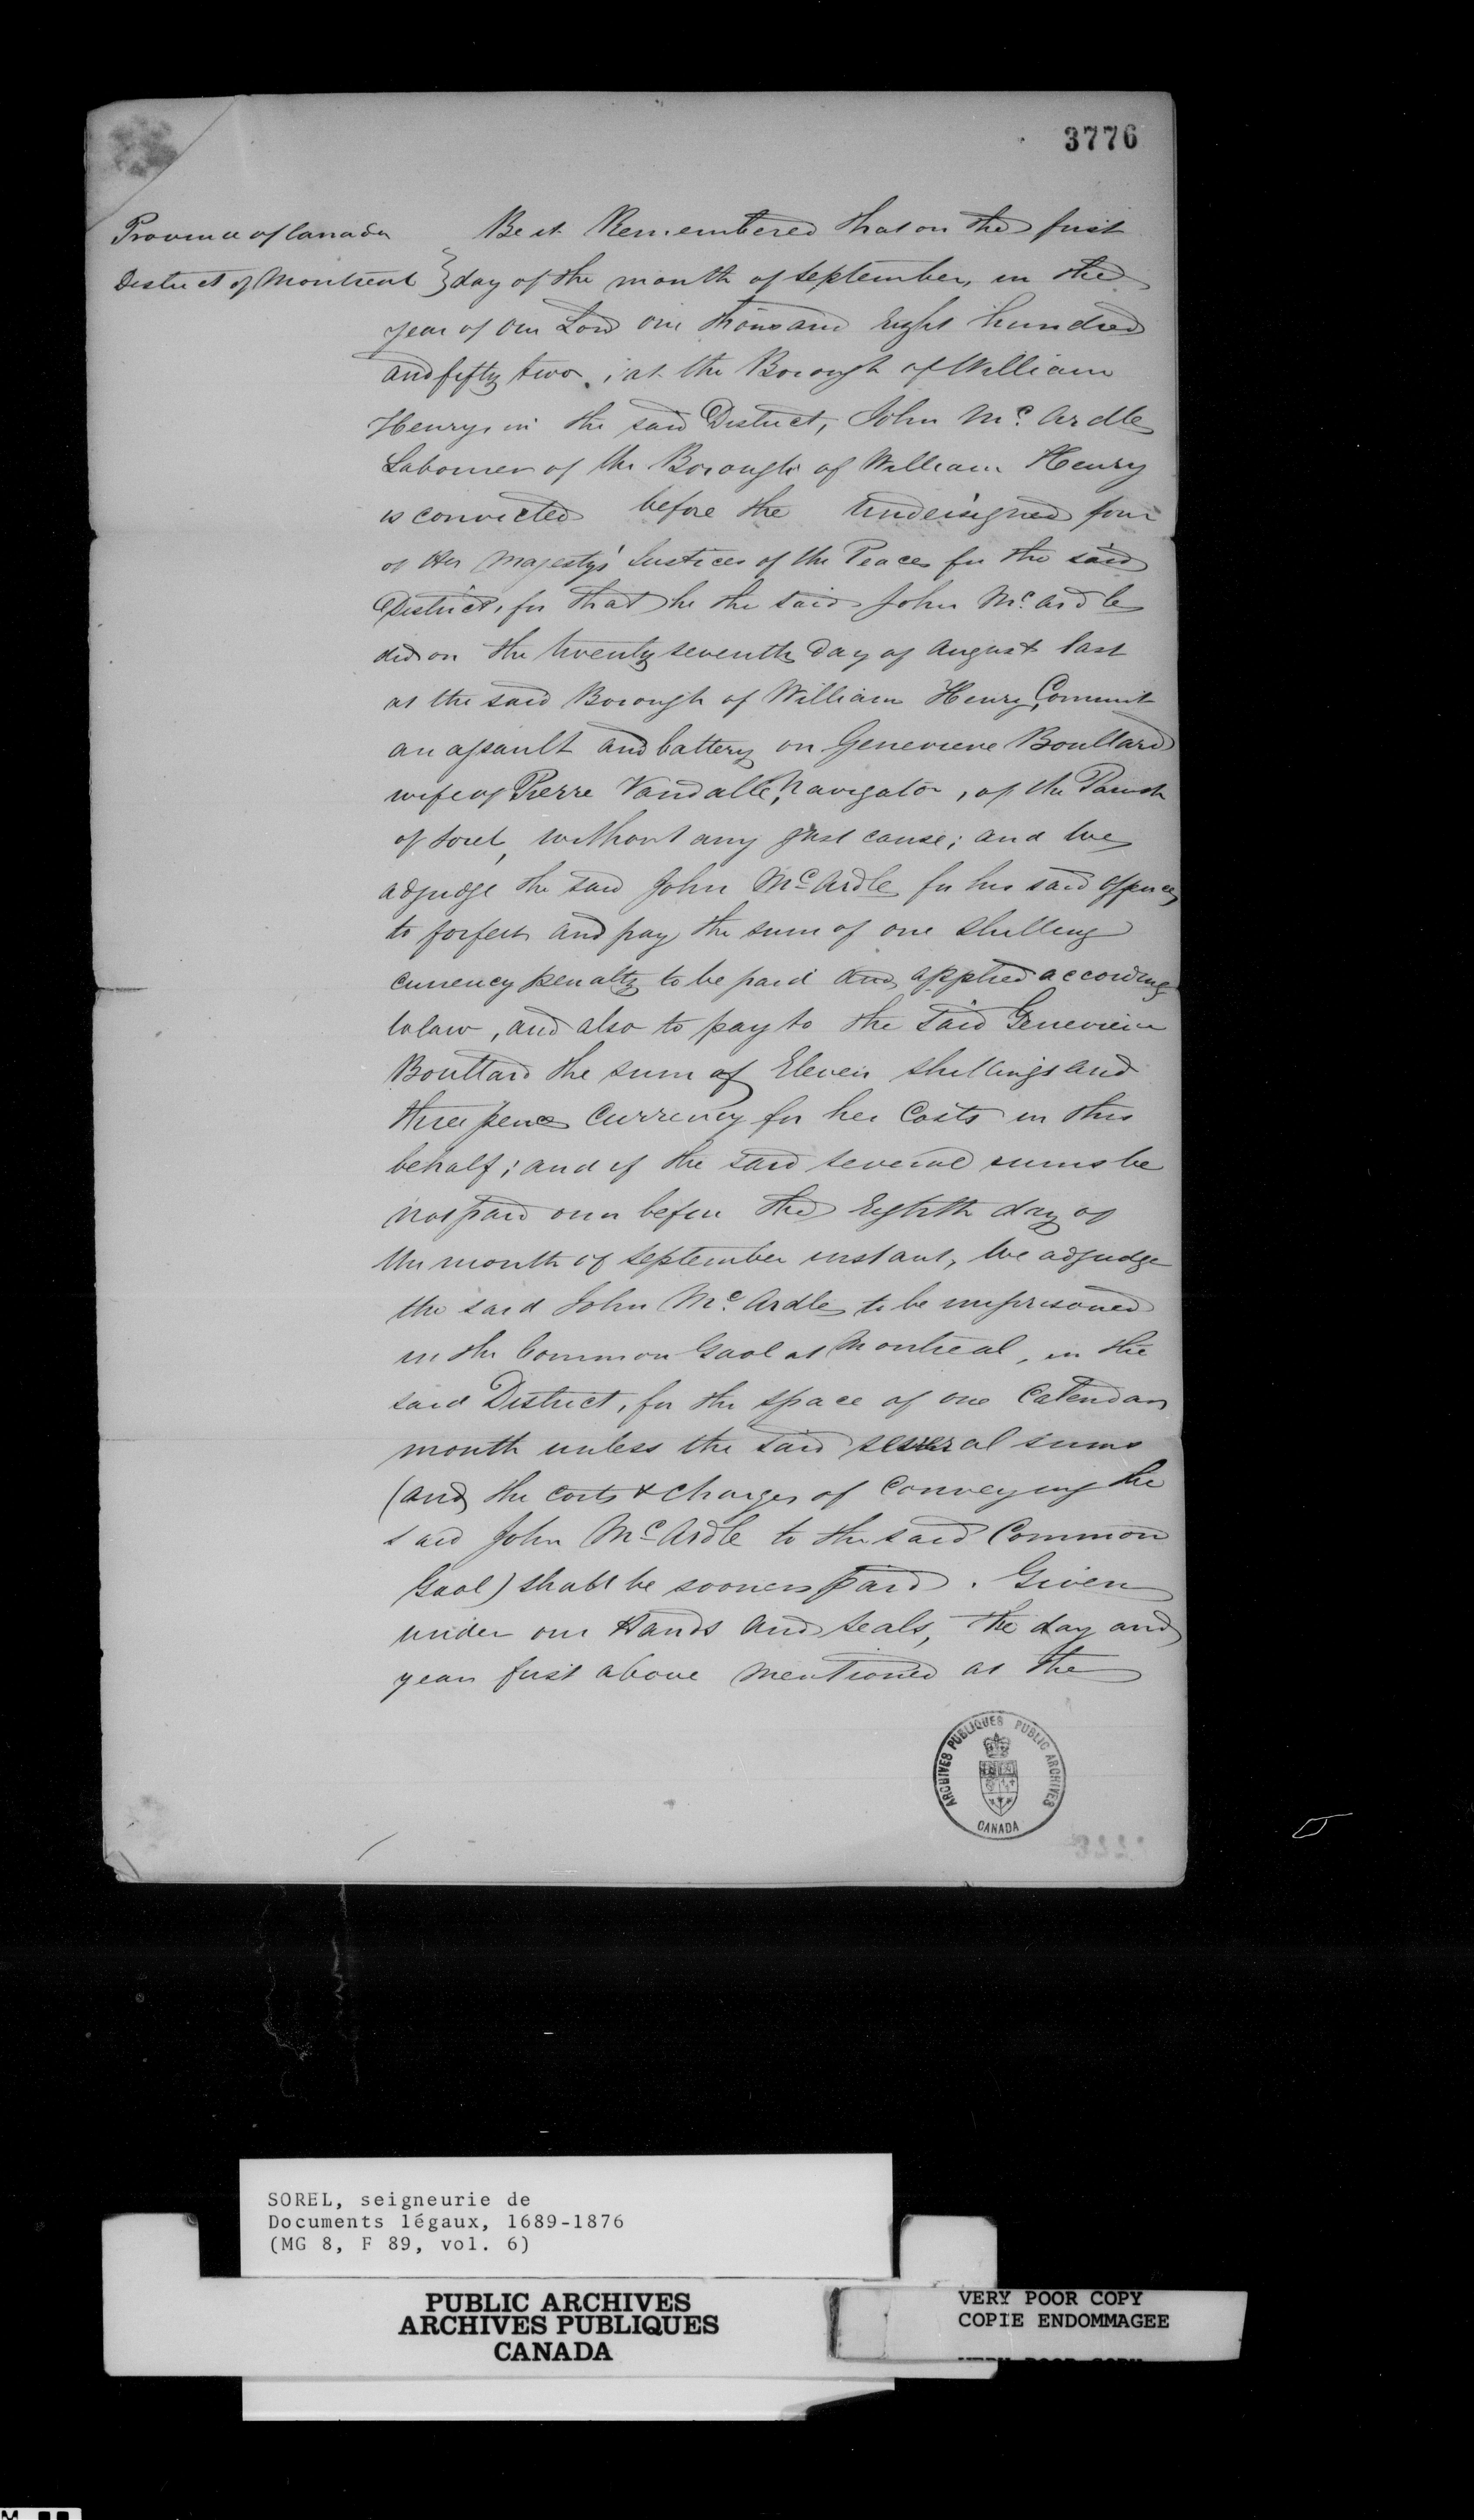 3776
Province of Canada
District of Montreal }
Be it Remembered that on the first
day of the month of September, in the
year of our Lord one thousand Eight hundred
and fifty two, at the Borough of William
Henry, in the said District, John Mc. Ardle
Labourer of the Borough of William Henry
is convicted before the Undersigned four
of Her Majesty's Justices of the Peace for the said
District, for that he the said John Mc. Ardle
did on the twenty seventh day of August last
at the said Borough of William Henry, Commit
an assault and battery on Genevieve Boultard
wife of Pierre Vandalle, Navigator, of the Parish
of Sorel, without any just cause; and we
adjudge the said John Mc Ardle for his said offence
to forfeit and pay the sum of one shilling
currency penalty to be paid and applied according
to law, and also to pay to the said Genevieve
Boultard the sum of Eleven shillings and
three pence Currency for her Costs in this
behalf; and if the said several sums be
not paid on or before the Eighth day of
the month of September instant, we adjudge
the said John Mc. Ardle to be imprisoned
in the Common Gaol at Montreal, in the
said District, for the space of one Calendar
month unless the said several sums
(and the costs & charges of Conveying the
said John Mc Ardle to the said Common
Gaol) shall be sooner paid. Given
under our Hands and seals, the day and
year first above mentioned at the
ARCHIVES PUBLIQUES PUBLIC ARCHIVES
CANADA
SOREL, seigneurie de
Documents légaux, 1689-1876
(MG 8, F 89, vol. 6)
PUBLIC ARCHIVES
ARCHIVES PUBLIQUES
CANADA
VERY POOR COPY
COPIE ENDOMMAGEE